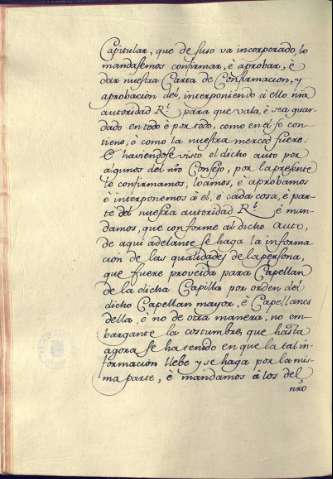 Capitular, que de suso va incorporado, lo
mandasemos confirmar, è aprobar, è
dar nuestra Carta de Confirmacion, y
aprobacion del, interponiendo à ello nrã
autoridad R.l para que vala, è sea guar-
dado en todo è por todo, como en el se con-
tiene, ò como la nuestra merced fuere.
E haviendose visto el dicho auto por
algunos del nrõ Consejo, por la presente
te confirmamos, loamos, è aprobamos
è interponemos à el, è cada cosa, è par-
te del nuestra autoridad R.l è man-
damos, que conforme al dicho auto,
de aqui adelante se haga la informa
cion de las qualidades de la persona,
que fuere proveida para Capellan
de la dicha Capilla por orden del
dicho Capellan mayor, è Capellanes
della, è no de otra manera, no em-
bargante la costumbre, que hasta
agora se ha tenido en que la tal in-
formacion llebe y se haga por la mis-
ma parte, è mandamos à los del
nrõ